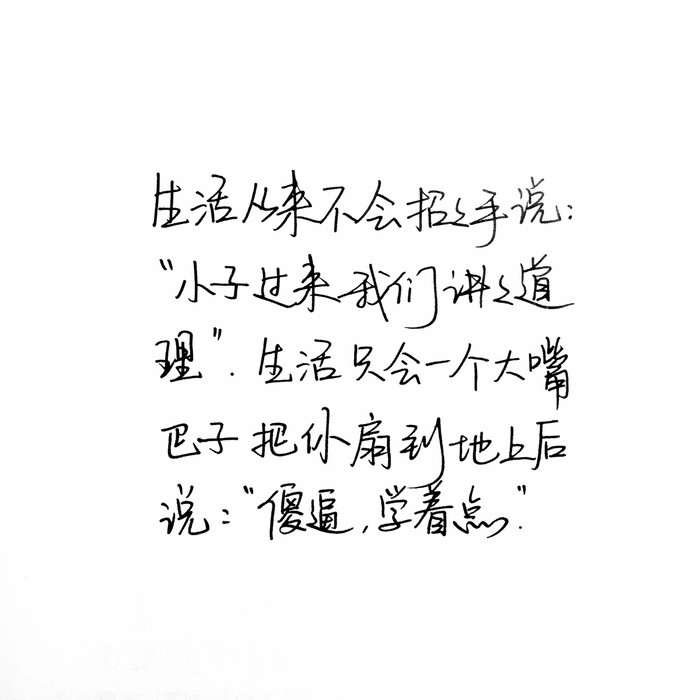 生活从来不会招招手说:
“小子过来我们讲讲道
理”.生活只会一个大嘴
巴子把你扇到地上后
说:“傻逼,学着点”.